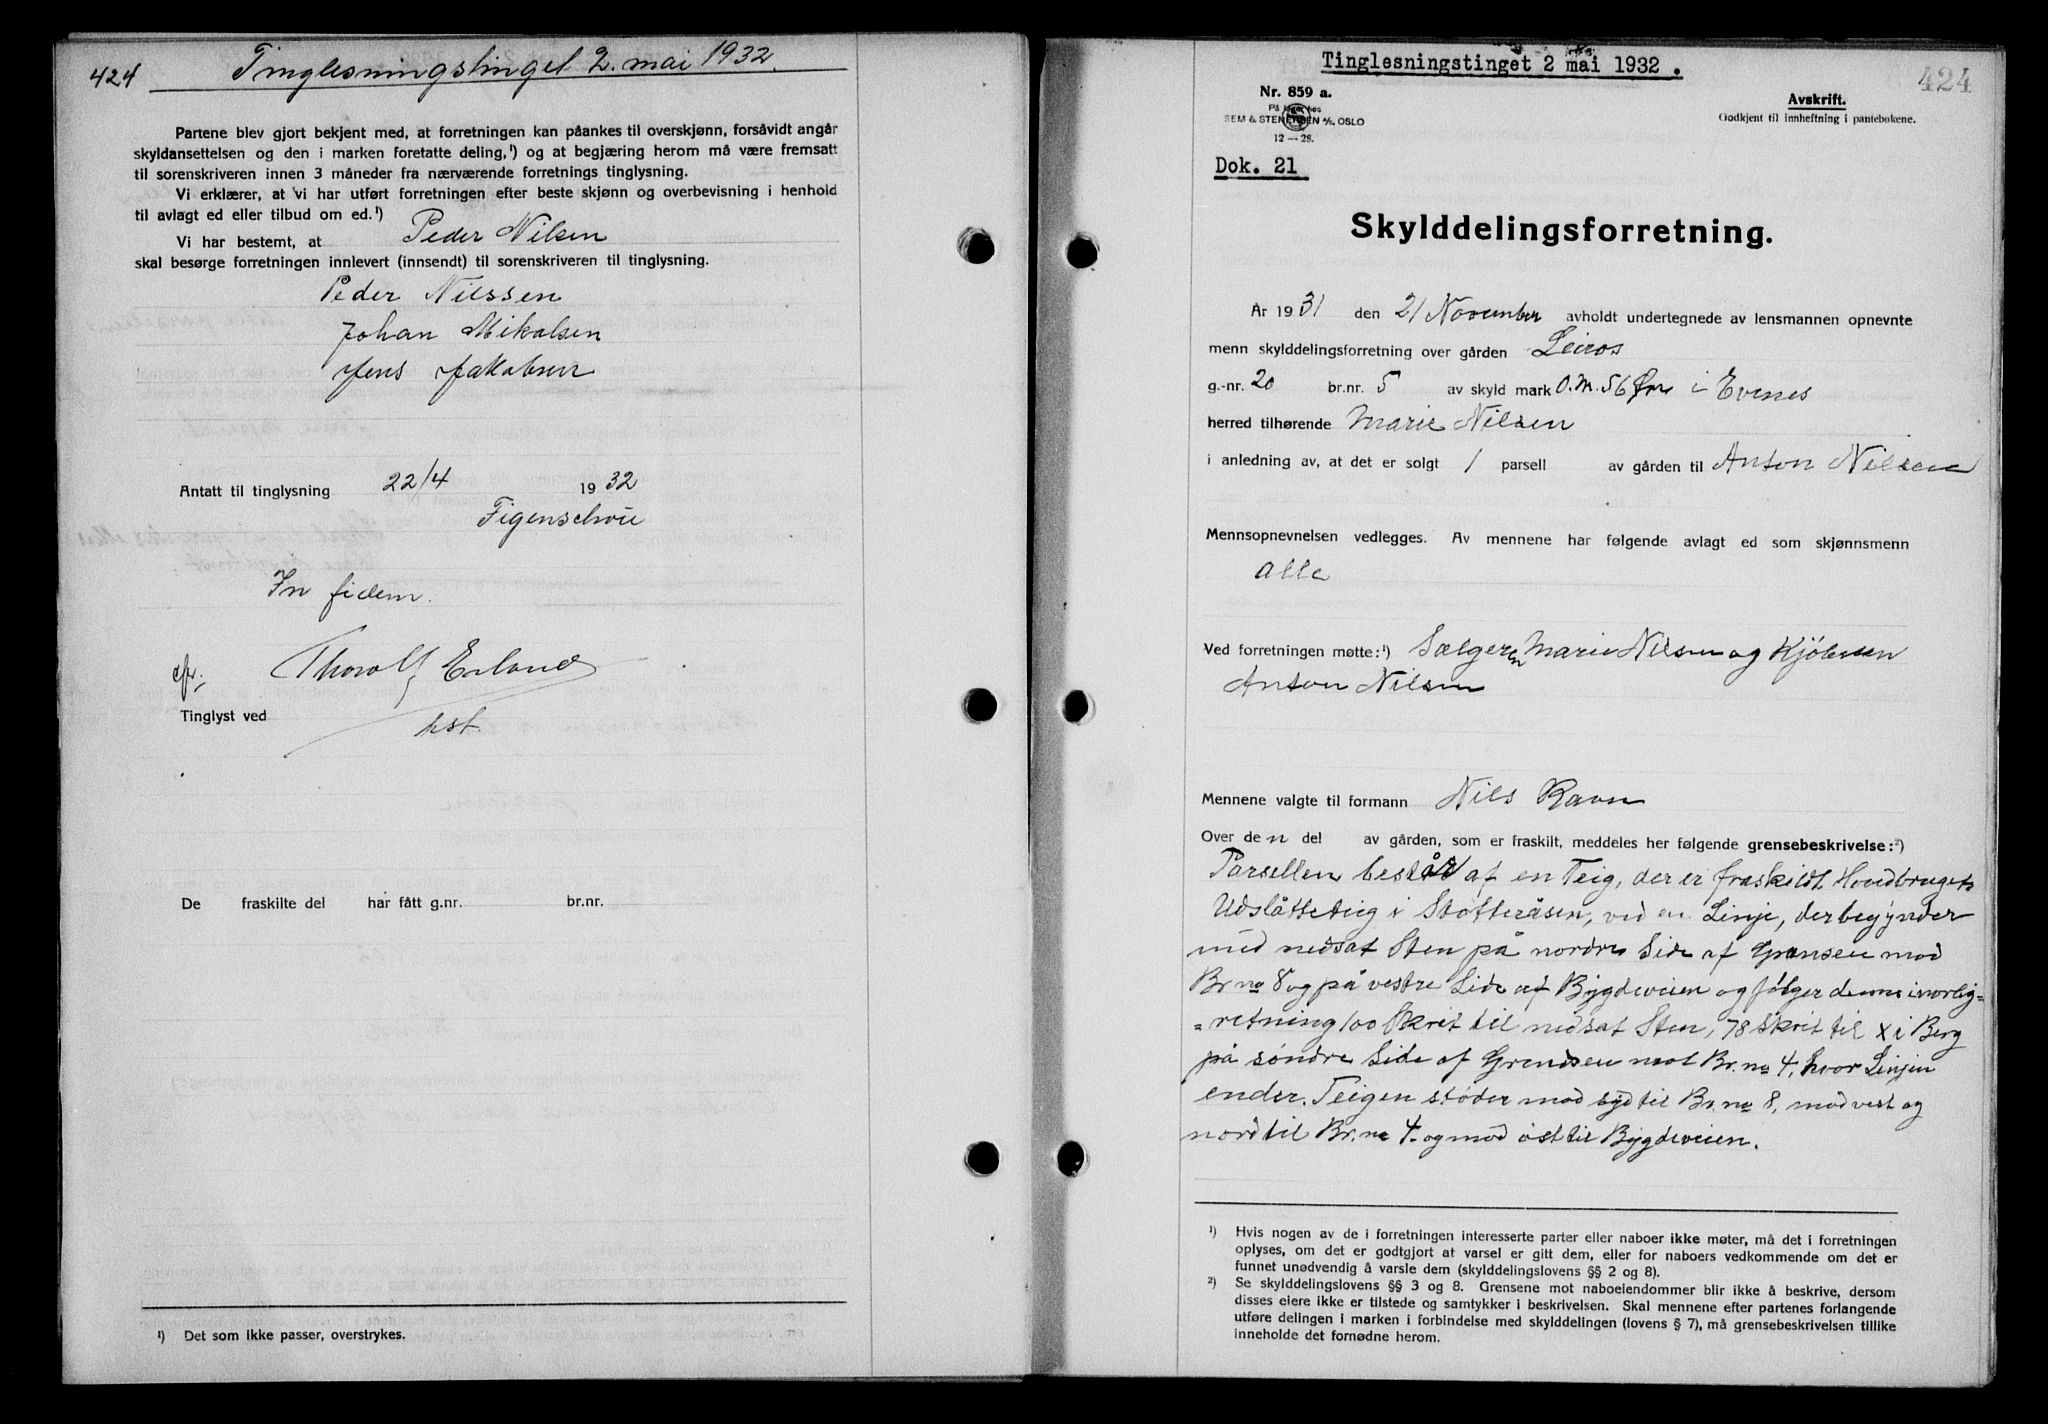 424
Tinglesningstinget 2. mai 1932.
Partene blev gjort bekjent med, at forretningen kan påankes til overskjønn, forsåvidt angår
skyldansettelsen og den i marken foretatte deling,¹) og at begjæring herom må være fremsatt
til sorenskriveren innen 3 måneder fra nærværende forretnings tinglysning.
Vi erklærer, at vi har utført forretningen efter beste skjønn og overbevisning i henhold
til avlagt ed eller tilbud om ed.¹)
Vi har bestemt, at Peder Nilsen
skal besørge forretningen innlevert (innsendt) til sorenskriveren til tinglysning.
Peder Nilssen
Johan Mikalsen
Jens Jakobsen
Antatt til tinglysning 22/4 1932
Figenschou
In fidem.
Thorolf Erlund
Tinglyst ved
hst.
De fraskilte del har fått g.nr. br.nr.
¹) Det som ikke passer, overstrykes.
Tinglesningstinget 2 mai 1932.
424
Nr. 859 a.
På lager hos
SEM & STENERSEN A/S, OSLO
12—28.
Avskrift.
Godkjent til innheftning i pantebøkene.
Dok. 21
Skylddelingsforretning.
År 1931 den 21 November avholdt undertegnede av lensmannen opnevnte
menn skylddelingsforretning over gården Leiros
g.-nr. 20 br.nr. 5 av skyld mark 0.M. 56 Øre i Evenes
herred tilhørende Marie Nilsen
i anledning av, at det er solgt 1 parsell av gården til Anton Nilsen
Mennsopnevnelsen vedlegges. Av mennene har følgende avlagt ed som skjønnsmenn
alle
Ved forretningen møtte:¹) Sælgeren Marie Nilsen og Kjøberen
Anton Nilsen
Mennene valgte til formann Nils Ravn
Over den del av gården, som er fraskilt, meddeles her følgende grensebeskrivelse:²)
Parsellen består af en Teig, der er fraskildt Hovedbrugets
Udslåtteteig i Støtteråsen, ved en Linje, der begynder
med nedsat Sten på nordre Side af Grænsen mod
Br. no 8 og på vestre Side af Bygdeveien og følger denne i nordlig=
=retning 100 Skrit til nedsat Sten, 78 Skrit til x i Berg
på søndre Side af Grendsen mot Br. no 4, hvor Linjen
ender. Teigen støder mod syd til Br. no 8, mod vest og
nord til Br. no 4. og mod øst til Bygdeveien.
¹) Hvis nogen av de i forretningen interesserte parter eller naboer ikke møter, må det i forretningen
oplyses, om det er godtgjort at varsel er gitt dem, eller for naboers vedkommende om det er
funnet unødvendig å varsle dem (skylddelingslovens §§ 2 og 8).
²) Se skylddelingslovens §§ 3 og 8. Grensene mot naboeiendommer blir ikke å beskrive, dersom
disses eiere ikke er tilstede og samtykker i beskrivelsen. Skal mennene efter partenes forlangende
utføre delingen i marken i forbindelse med skylddelingen (lovens § 7), må grensebeskrivelsen tillike
inneholde det fornødne herom.